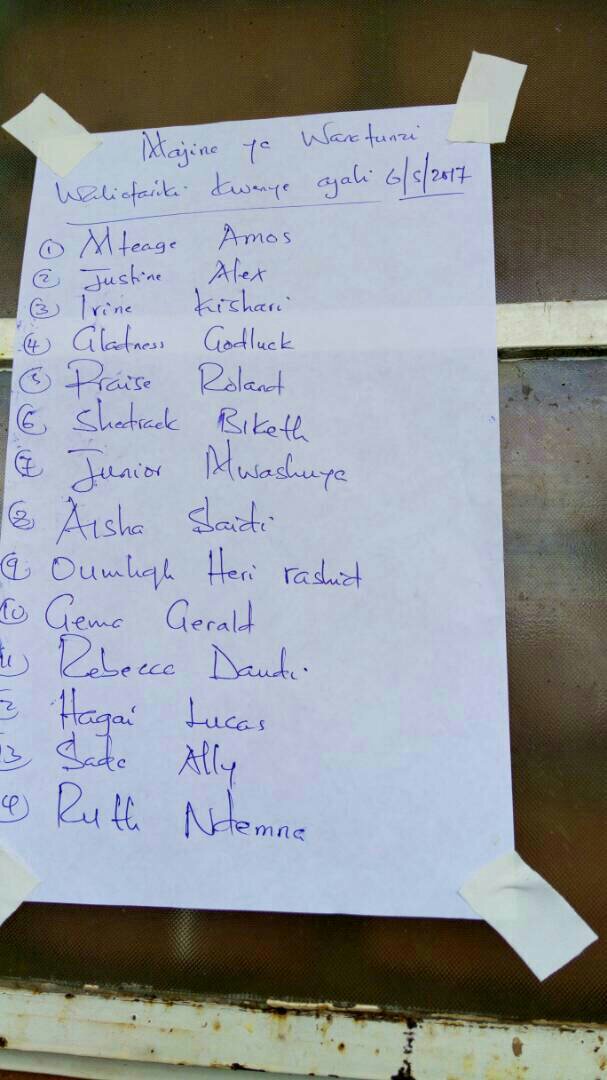 Majine ya Wanafunzi
Waliofariki kwenye ajali 6/5/2017
① Mteage Amos
② Justine Alex
③ Irine Kishari
④ Gladness Godluck
⑤ Praise Roland
⑥ Shadrack Biketh
⑦ Junior Mwashuya
⑧ Aisha Saidi
⑨ Oumliqh Heri rashid
10 Gema Gerald
11 Rebecca Daudi
12 Hagai Lucas
13 Sada Ally
14 Ruth Ndemna